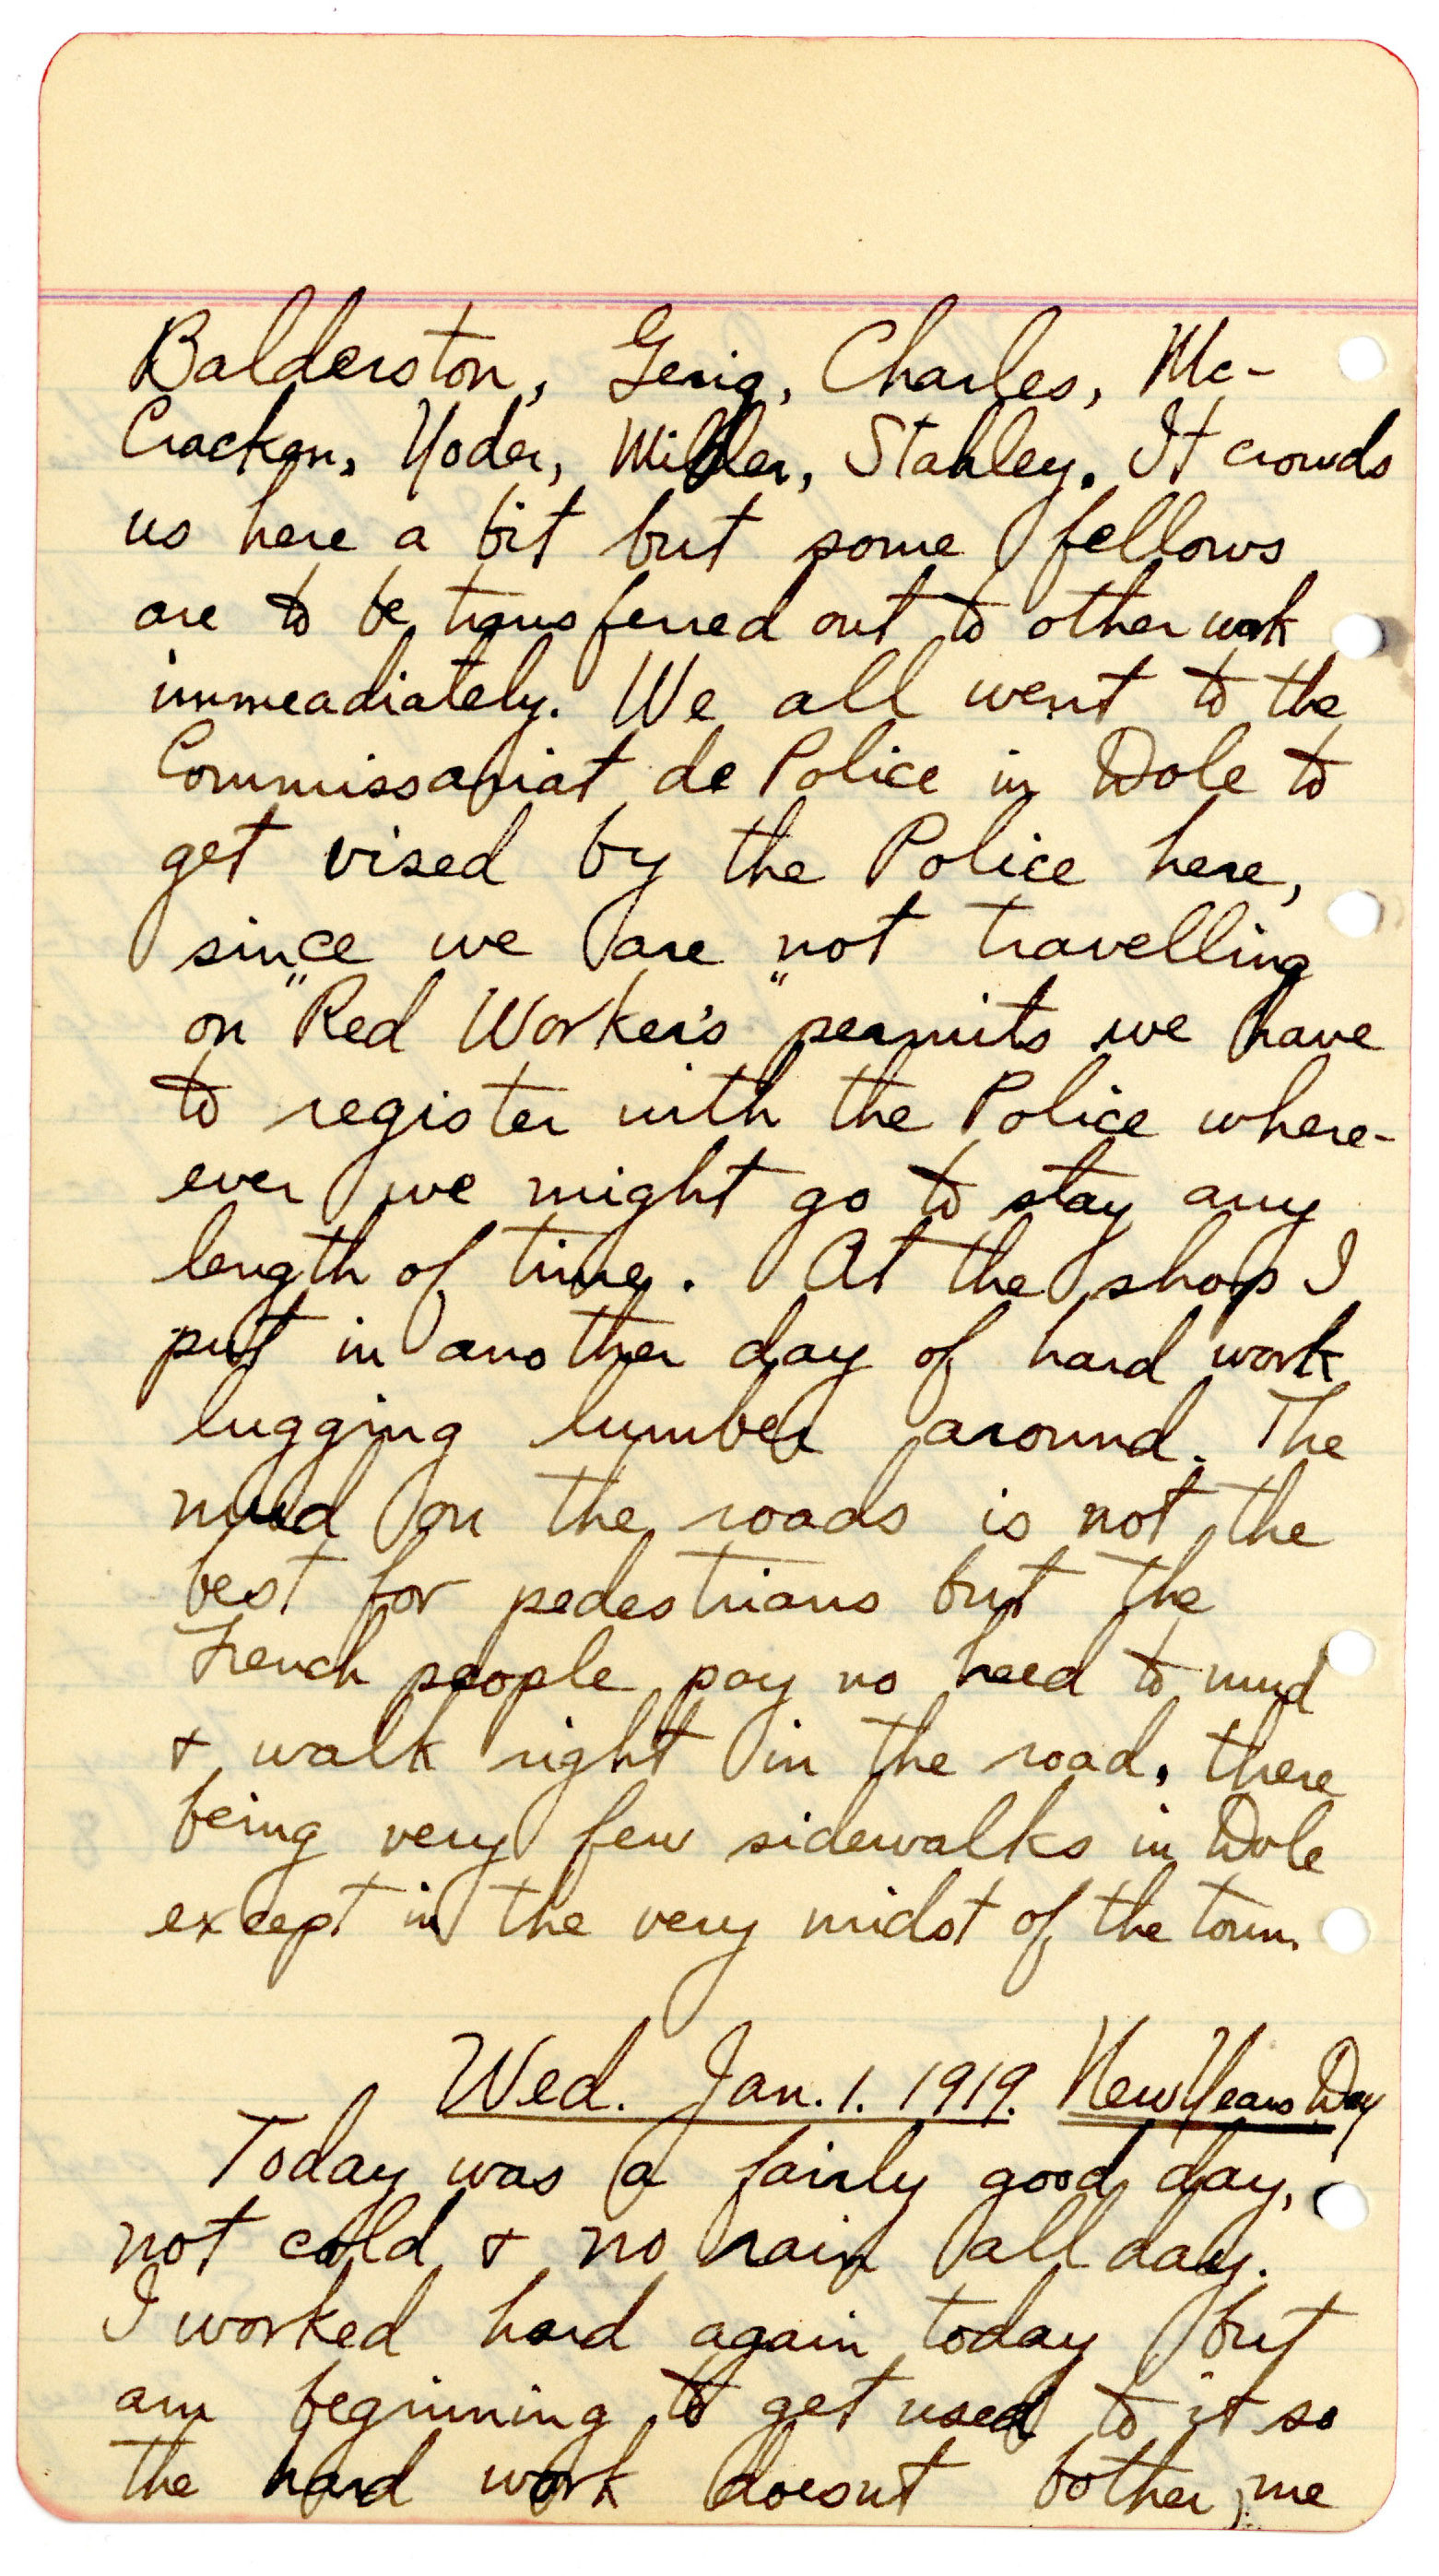 Balderston, Gerig, Charles, Mc-
Cracken, Yoder, Miller, Stahley. It crowds
us here a bit but some fellows
are to be transferred out to other work
immeadiately. We all went to the
Commissariat de Police in Dole to
get vised by the Police here,
since we are not travelling
on "Red Worker's" permits we have
to register with the Police where-
ever we might go to stay any
length of time. At the shop I
put in another day of hard work
lugging lumber around. The
mud on the roads is not the
best for pedestrians but the
French people pay no heed to mud
& walk right in the road, there
being very few sidewalks in Dole
except in the very midst of the town.
Wed. Jan. 1. 1919. New Years Day
Today was a fairly good day,
not cold & no rain all day.
I worked hard again today but
am beginning to get used to it so
the hard work doesnt bother me